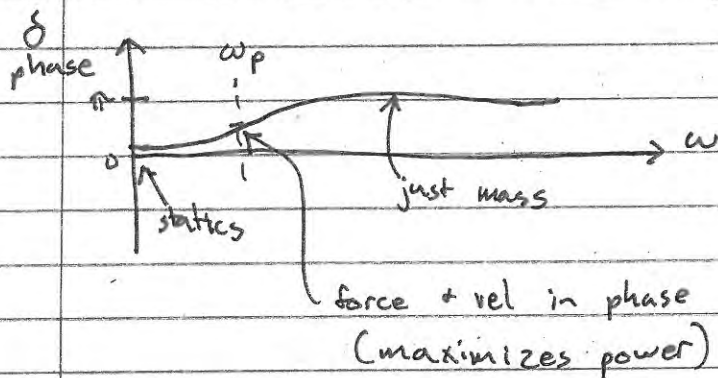 δ
phase
ωp
π
0
ω
statics
just mass
force + vel in phase
(maximizes power)